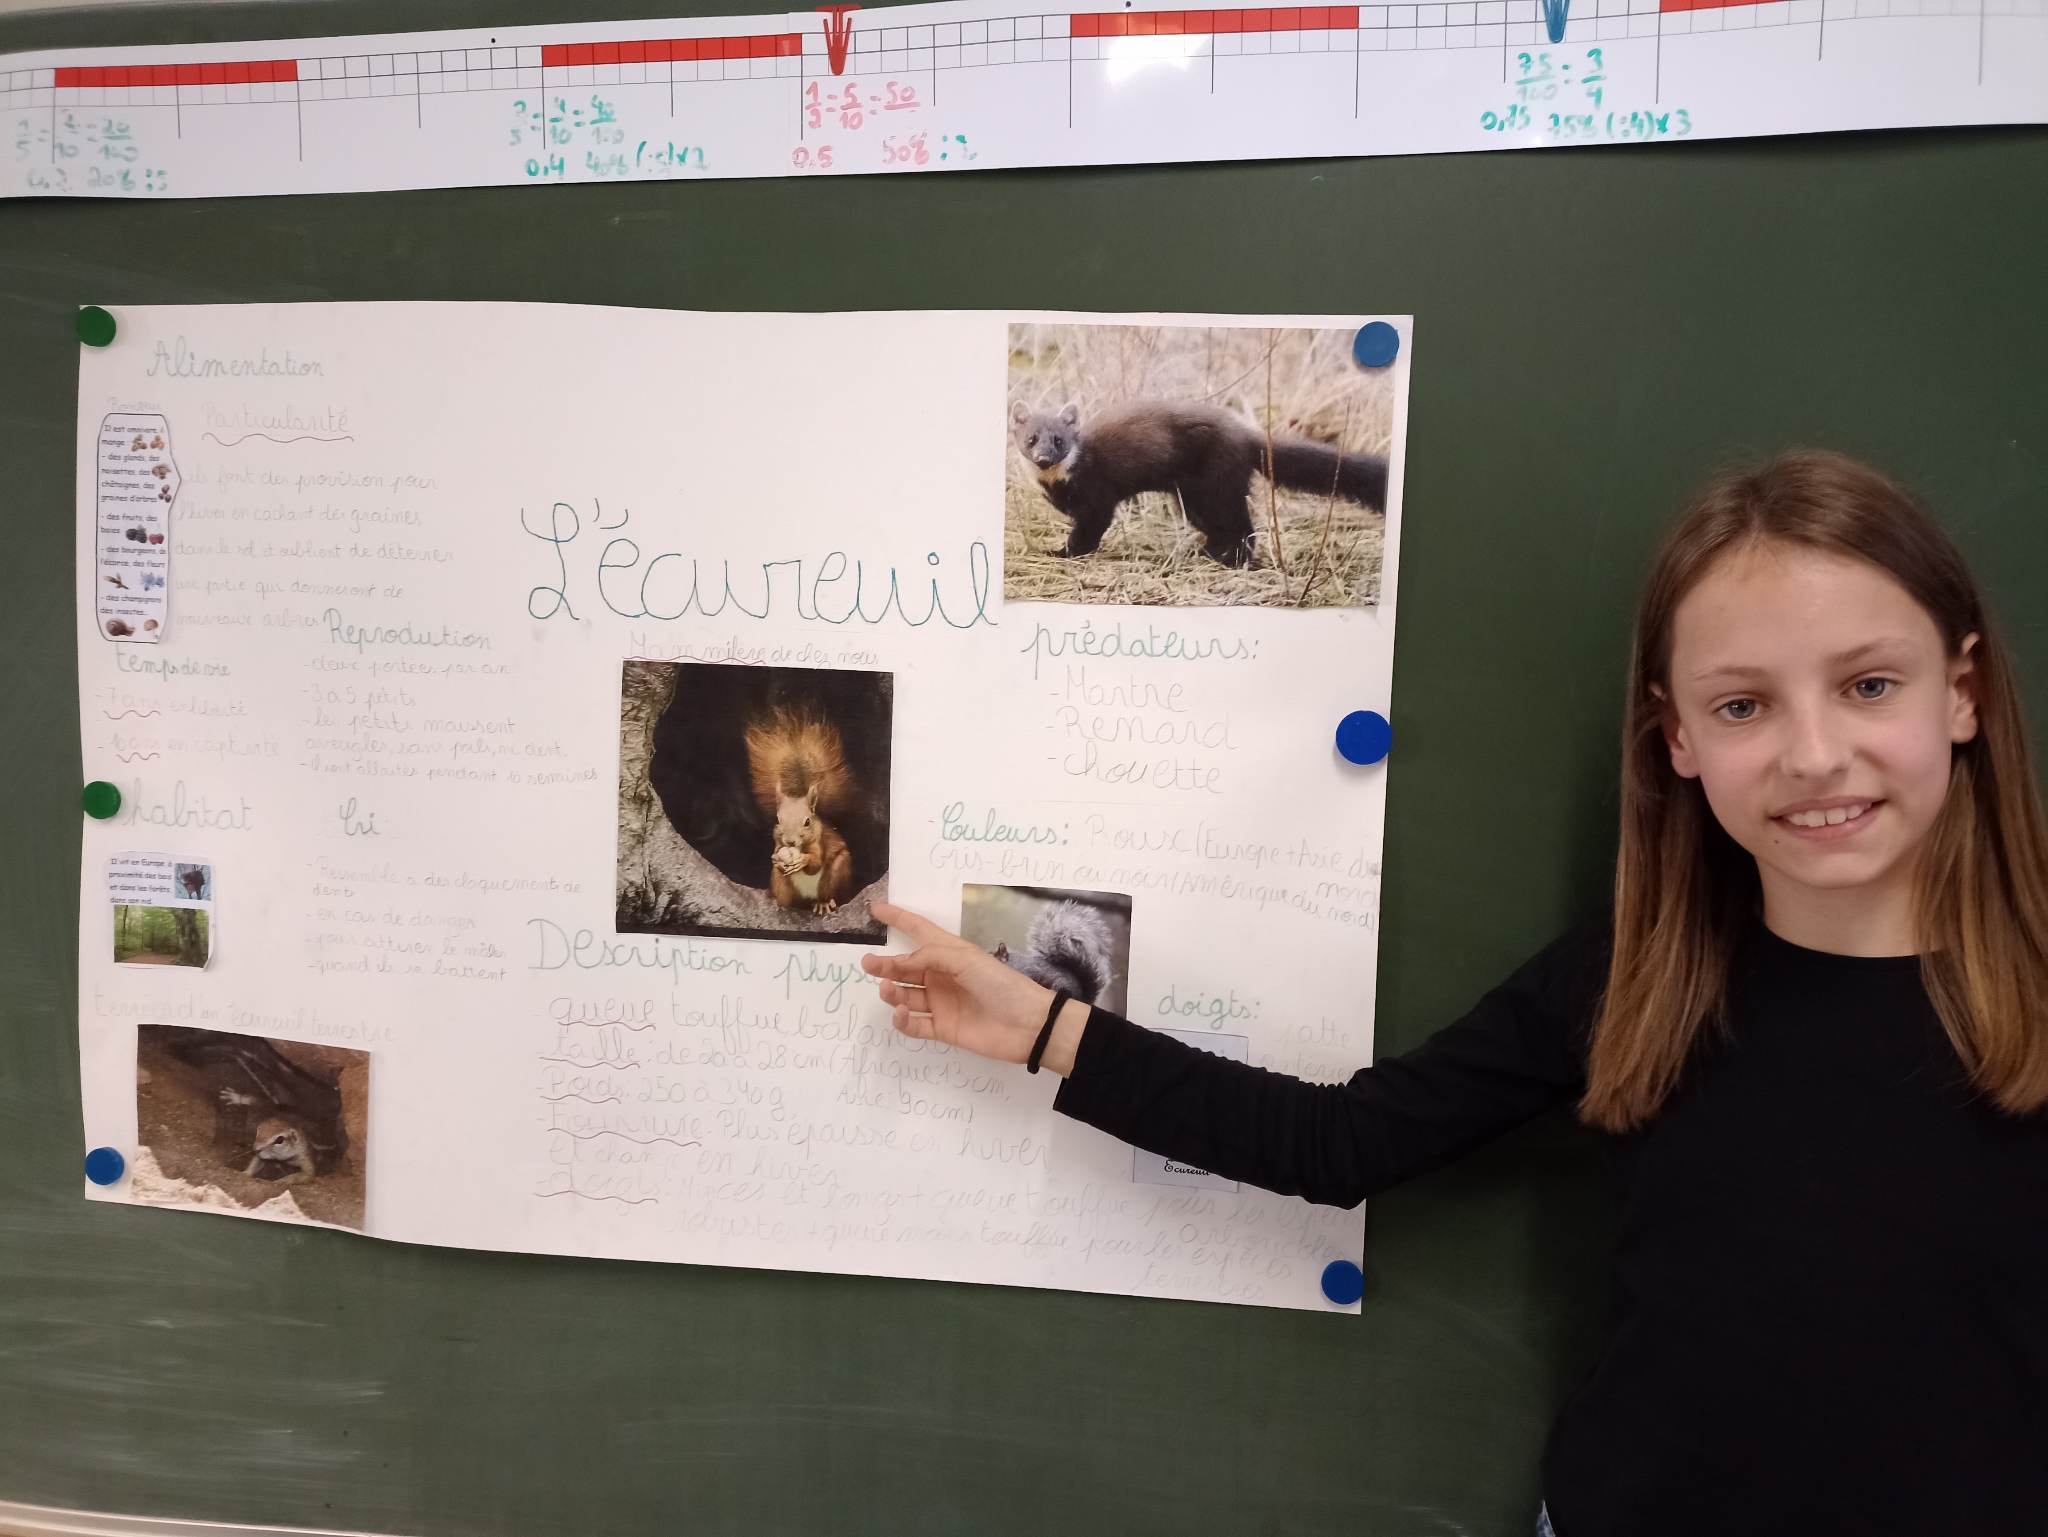 0,4 40% (:5)x2
1/2 = 5/10 = 50
0.5 50% :2
75/100 = 3/4
0,75 75% (:4)x3
Alimentation
Il est omnivore, il
mange :
- des glands, des
noisettes, des
châtaignes, des
graines d'arbres
- des fruits, des
baies
- des bourgeons, de
l'écorce, des fleurs
- des champignons
des insectes...
Particularité
ils font des provision pour
l'hiver en cachant des graines
dans le sol et oublient de déterrer
une partie qui donneront de
nouveaux arbres
temps de vie
- 7 ans en liberté
- 10 ans en captivité
Reproduction
- deux portées par an
- 3 à 5 petits
- les petits naissent
aveugles, sans poils, ni dent.
- Il sont allaités pendant 10 semaines
habitat
Il vit en Europe, à
proximité des bois
et dans les forêts,
dans son nid.
Cri
- Ressemble a des claquements de
dents
- en cas de danger
- pour attirer le mâle
- quand ils se battent
terrier d'un écureuil terrestre
L'écureuil
Mammifère de chez nous
Description phys
- queue touffue balancier
- taille : de 20 à 28 cm (Afrique: 13 cm,
Asie: 90cm)
- Poids: 250 à 340g
- Fourrure: Plus épaisse en hiver
et change en hiver
- doigts: Minces et longs + queue touffue pour les espèces
arboricoles
robustes + queue moins touffue pour les espèces
terrestres
prédateurs:
- Martre
- Renard
- chouette
- Couleurs: Roux (Europe + Asie du
nord
Gris-brun ou noir (Amérique du nord)
doigts:
patte
Ecureuil